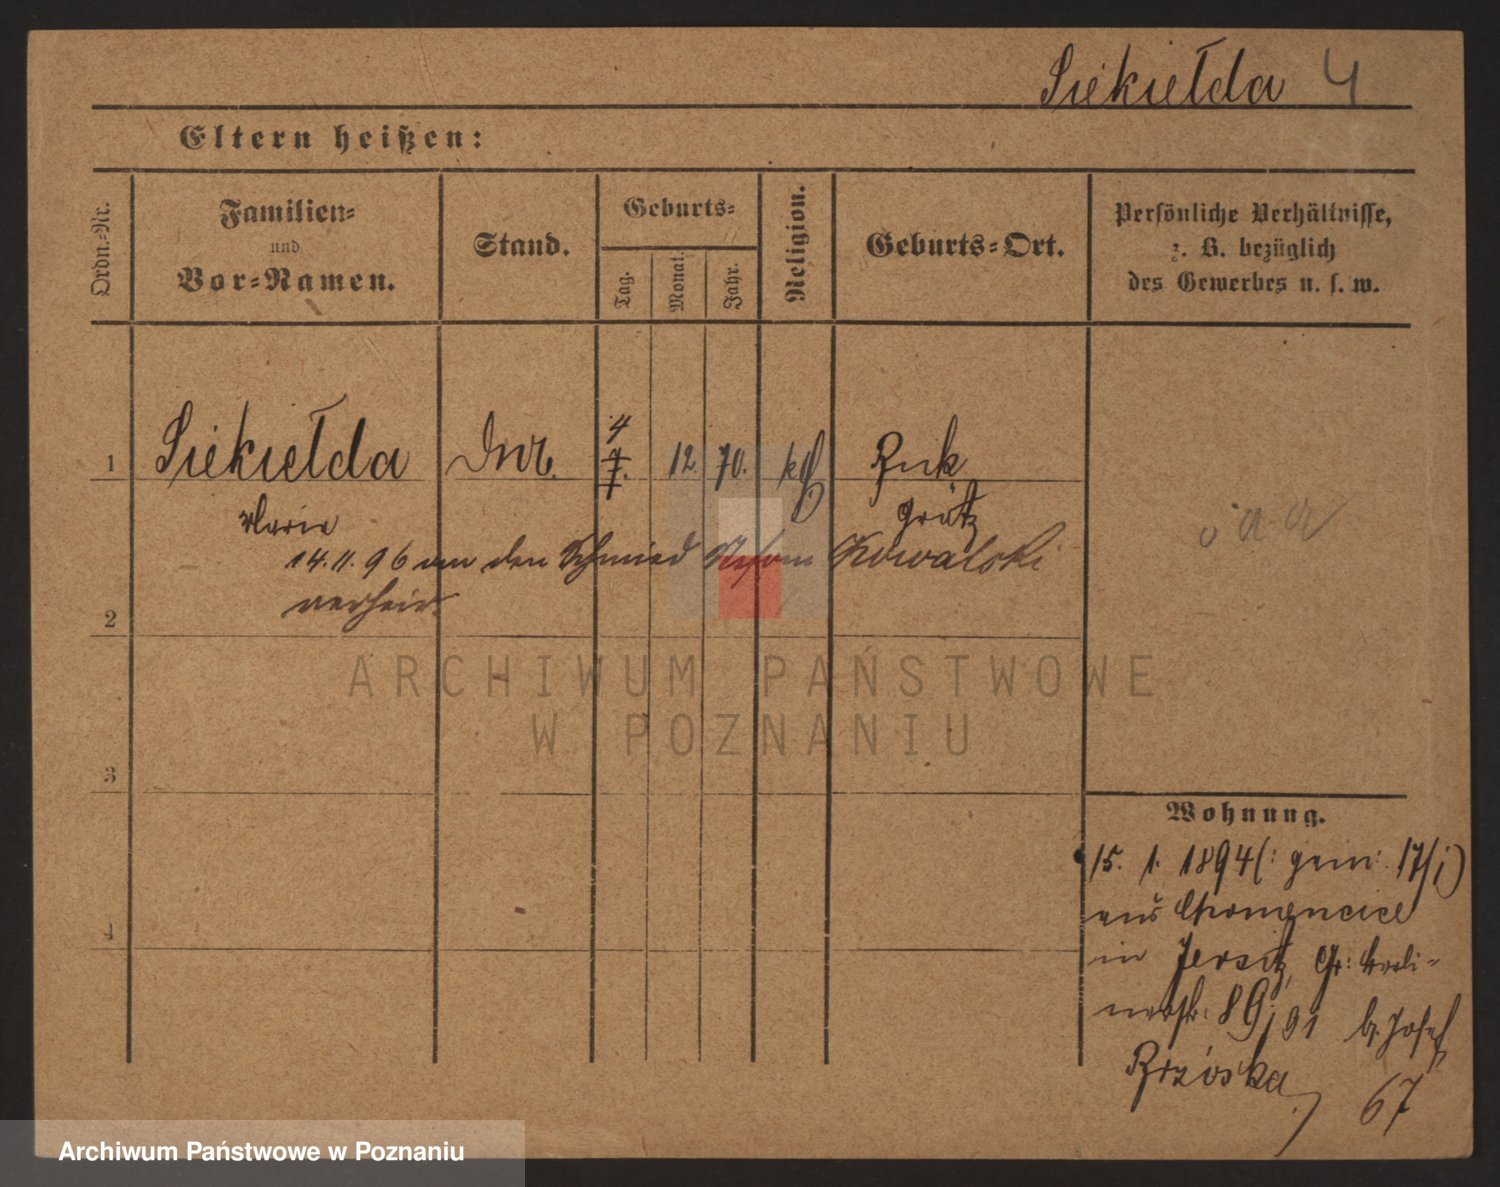 Siekiełda 4
Eltern heißen:
Ordn.-Nr.
Familien-
und
Vor-Namen.
Stand.
Geburts-
Tag.
Monat.
Jahr.
Religion.
Geburts-Ort.
Persönliche Verhältnisse,
z. B. bezüglich
des Gewerbes u. s. w.
1 Siekiełda 4 12. 70. kth Buk
Maria Grätz
14.11.96 an den Schmied Kowalski
verheir.
2
3
4
ARCHIWUM PAŃSTWOWE
W POZNANIU
Wohnung.
15. 1. 1894 (: gem: 17/1)
aus
in Jersitz, Gr: Berli-
nerstr: 89/91 b. Josef
Brzóska
67
Archiwum Państwowe w Poznaniu